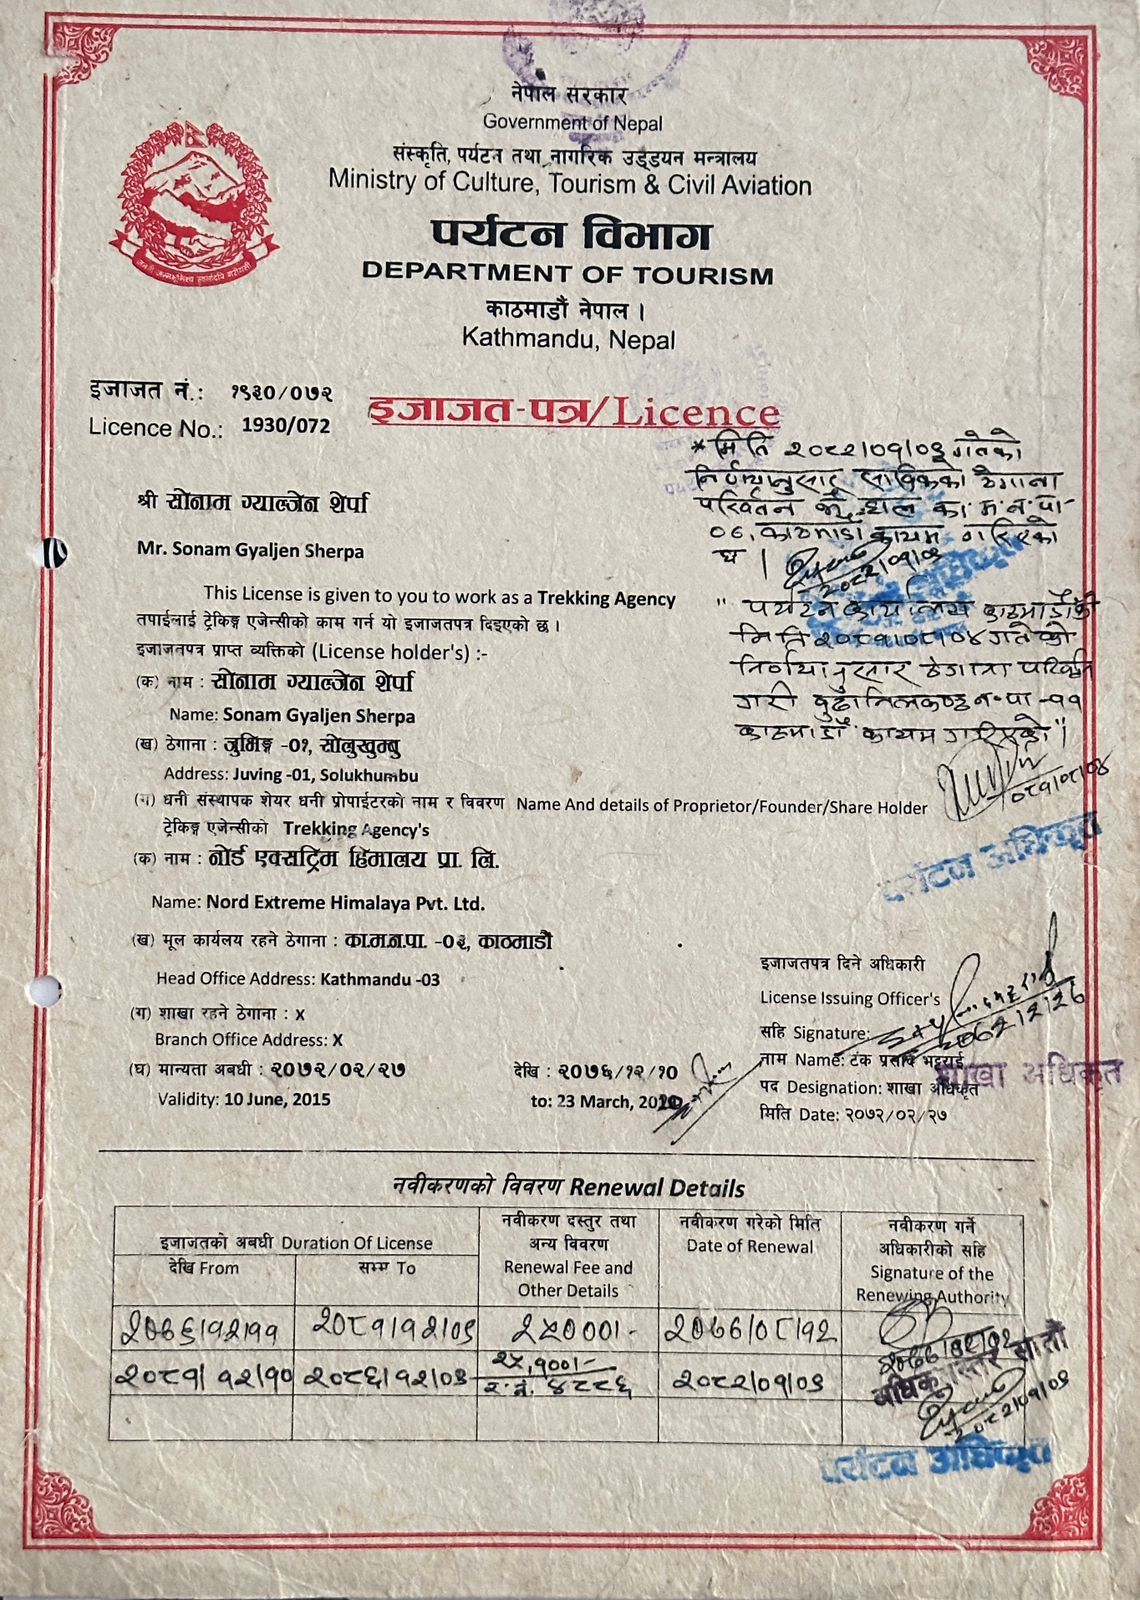 नेपाल सरकार
Government of Nepal
संस्कृति, पर्यटन तथा नागरिक उड्डयन मन्त्रालय
Ministry of Culture, Tourism & Civil Aviation
पर्यटन विभाग
DEPARTMENT OF TOURISM
काठमाडौं नेपाल ।
Kathmandu, Nepal
इजाजत नं.: १९३०/०७२
Licence No.: 1930/072
इजाजत-पत्र/Licence
* मिति २०८२/०१/०३ गतेको
निर्णयानुसार साविकको ठेगाना
परिवर्तन भई हाल का.म.न.पा-
०६, काठमाडौं कायम गरिएको
छ |
२०८२/०१/०३
श्री सोनाम ग्याल्जेन शेर्पा
Mr. Sonam Gyaljen Sherpa
This License is given to you to work as a Trekking Agency
तपाईलाई ट्रेकिङ्ग एजेन्सीको काम गर्न यो इजाजतपत्र दिइएको छ ।
" पर्यटन कार्यालय काठमाडौंको
मिति २०८१/०८/०४ गतेको
निर्णयानुसार ठेगाना परिवर्तन
गरी बुढानिलकण्ठ न.पा -११
काठमाडौँ कायम गरिएको"|
२०८१/०८/०४
पर्यटन अधिकृत
इजाजतपत्र प्राप्त व्यक्तिको (License holder's) :-
(क) नाम : सोनाम ग्याल्जेन शेर्पा
Name: Sonam Gyaljen Sherpa
(ख) ठेगाना : जुभिङ्ग -०१, सोलुखुम्बु
Address: Juving -01, Solukhumbu
(ग) धनी संस्थापक शेयर धनी प्रोपाईटरको नाम र विवरण Name And details of Proprietor/Founder/Share Holder
ट्रेकिङ्ग एजेन्सीको Trekking Agency's
(क) नाम : नोर्ड एक्सट्रिम हिमालय प्रा. लि.
Name: Nord Extreme Himalaya Pvt. Ltd.
(ख) मूल कार्यलय रहने ठेगाना : का.म.न.पा. -०३, काठमाडौं
Head Office Address: Kathmandu -03
(ग) शाखा रहने ठेगाना : X
Branch Office Address: X
(घ) मान्यता अबधी : २०७२/०२/२७ देखि : २०७६/१२/१०
Validity: 10 June, 2015 to: 23 March, 2020
इजाजतपत्र दिने अधिकारी
License Issuing Officer's
सहि Signature:
नाम Name: टंक प्रसाद भट्टराई
शाखा अधिकृत
पद Designation: शाखा अधिकृत
मिति Date: २०७२/०२/२७
नवीकरणको विवरण Renewal Details
इजाजतको अबधी Duration Of License
देखि From
सम्म To
नवीकरण दस्तुर तथा
अन्य विवरण
Renewal Fee and
Other Details
नवीकरण गरेको मिति
Date of Renewal
नवीकरण गर्ने
अधिकारीको सहि
Signature of the
Renewing Authority
२०७६/१२/११ २०८१/१२/०९ २५०००/- २०७७/०८/१२
२०८१/१२/१० २०८६/१२/०९ २५,१००/- २०८२/०१/०३
र.नं. ४८८६
२०८२/०१/०३
पर्यटन अधिकृत